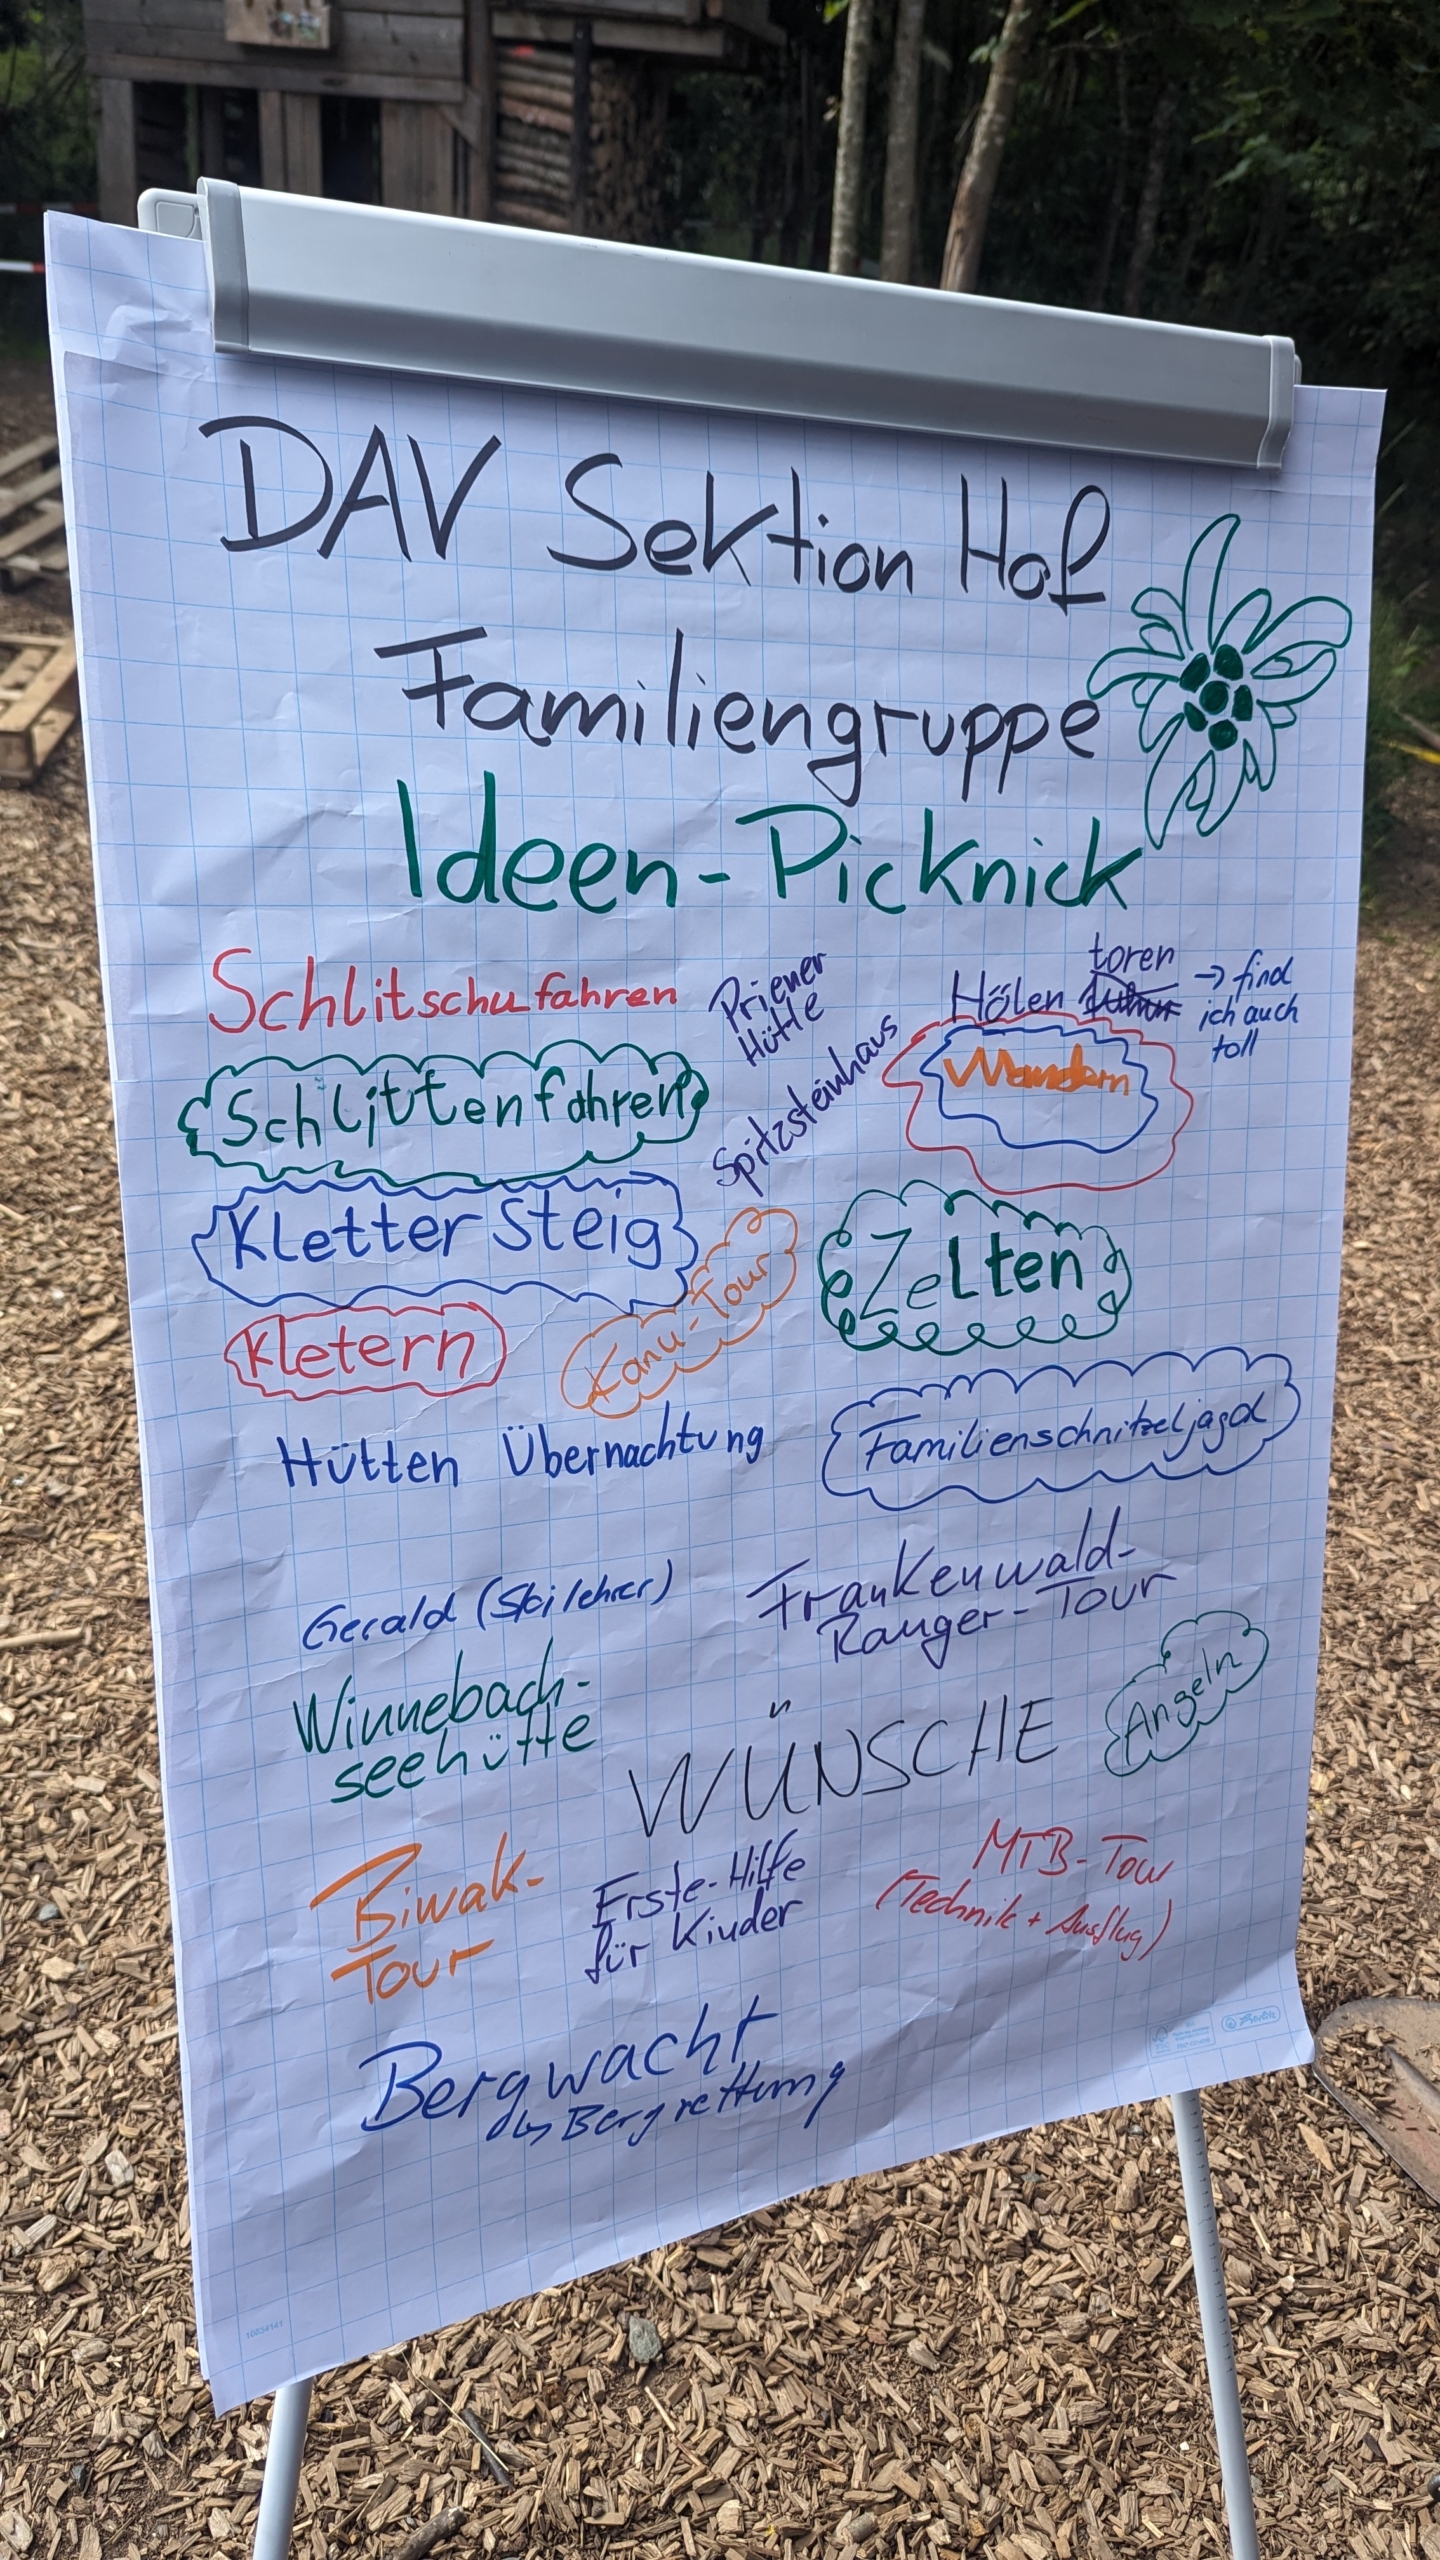 DAV Sektion Hof
Familiengruppe
Ideen-Picknick
Schlitschufahren
Priener
Hütte
Hölen
toren
→ find
ich auch
toll
Schlittenfahren
Spitzsteinhaus
Wandern
Kletter Steig
Kanu-Tour
Zelten
Kletern
Hütten Übernachtung
Familienschnitzeljagd
Gerald (Skilehrer)
Frankenwald-
Ranger-Tour
Winnebach-
seehütte
WÜNSCHE
Angeln
Biwak-
Tour
Erste-Hilfe
für Kinder
MTB-Tour
(Technik + Ausflug)
Bergwacht
↳ Bergrettung
10834141